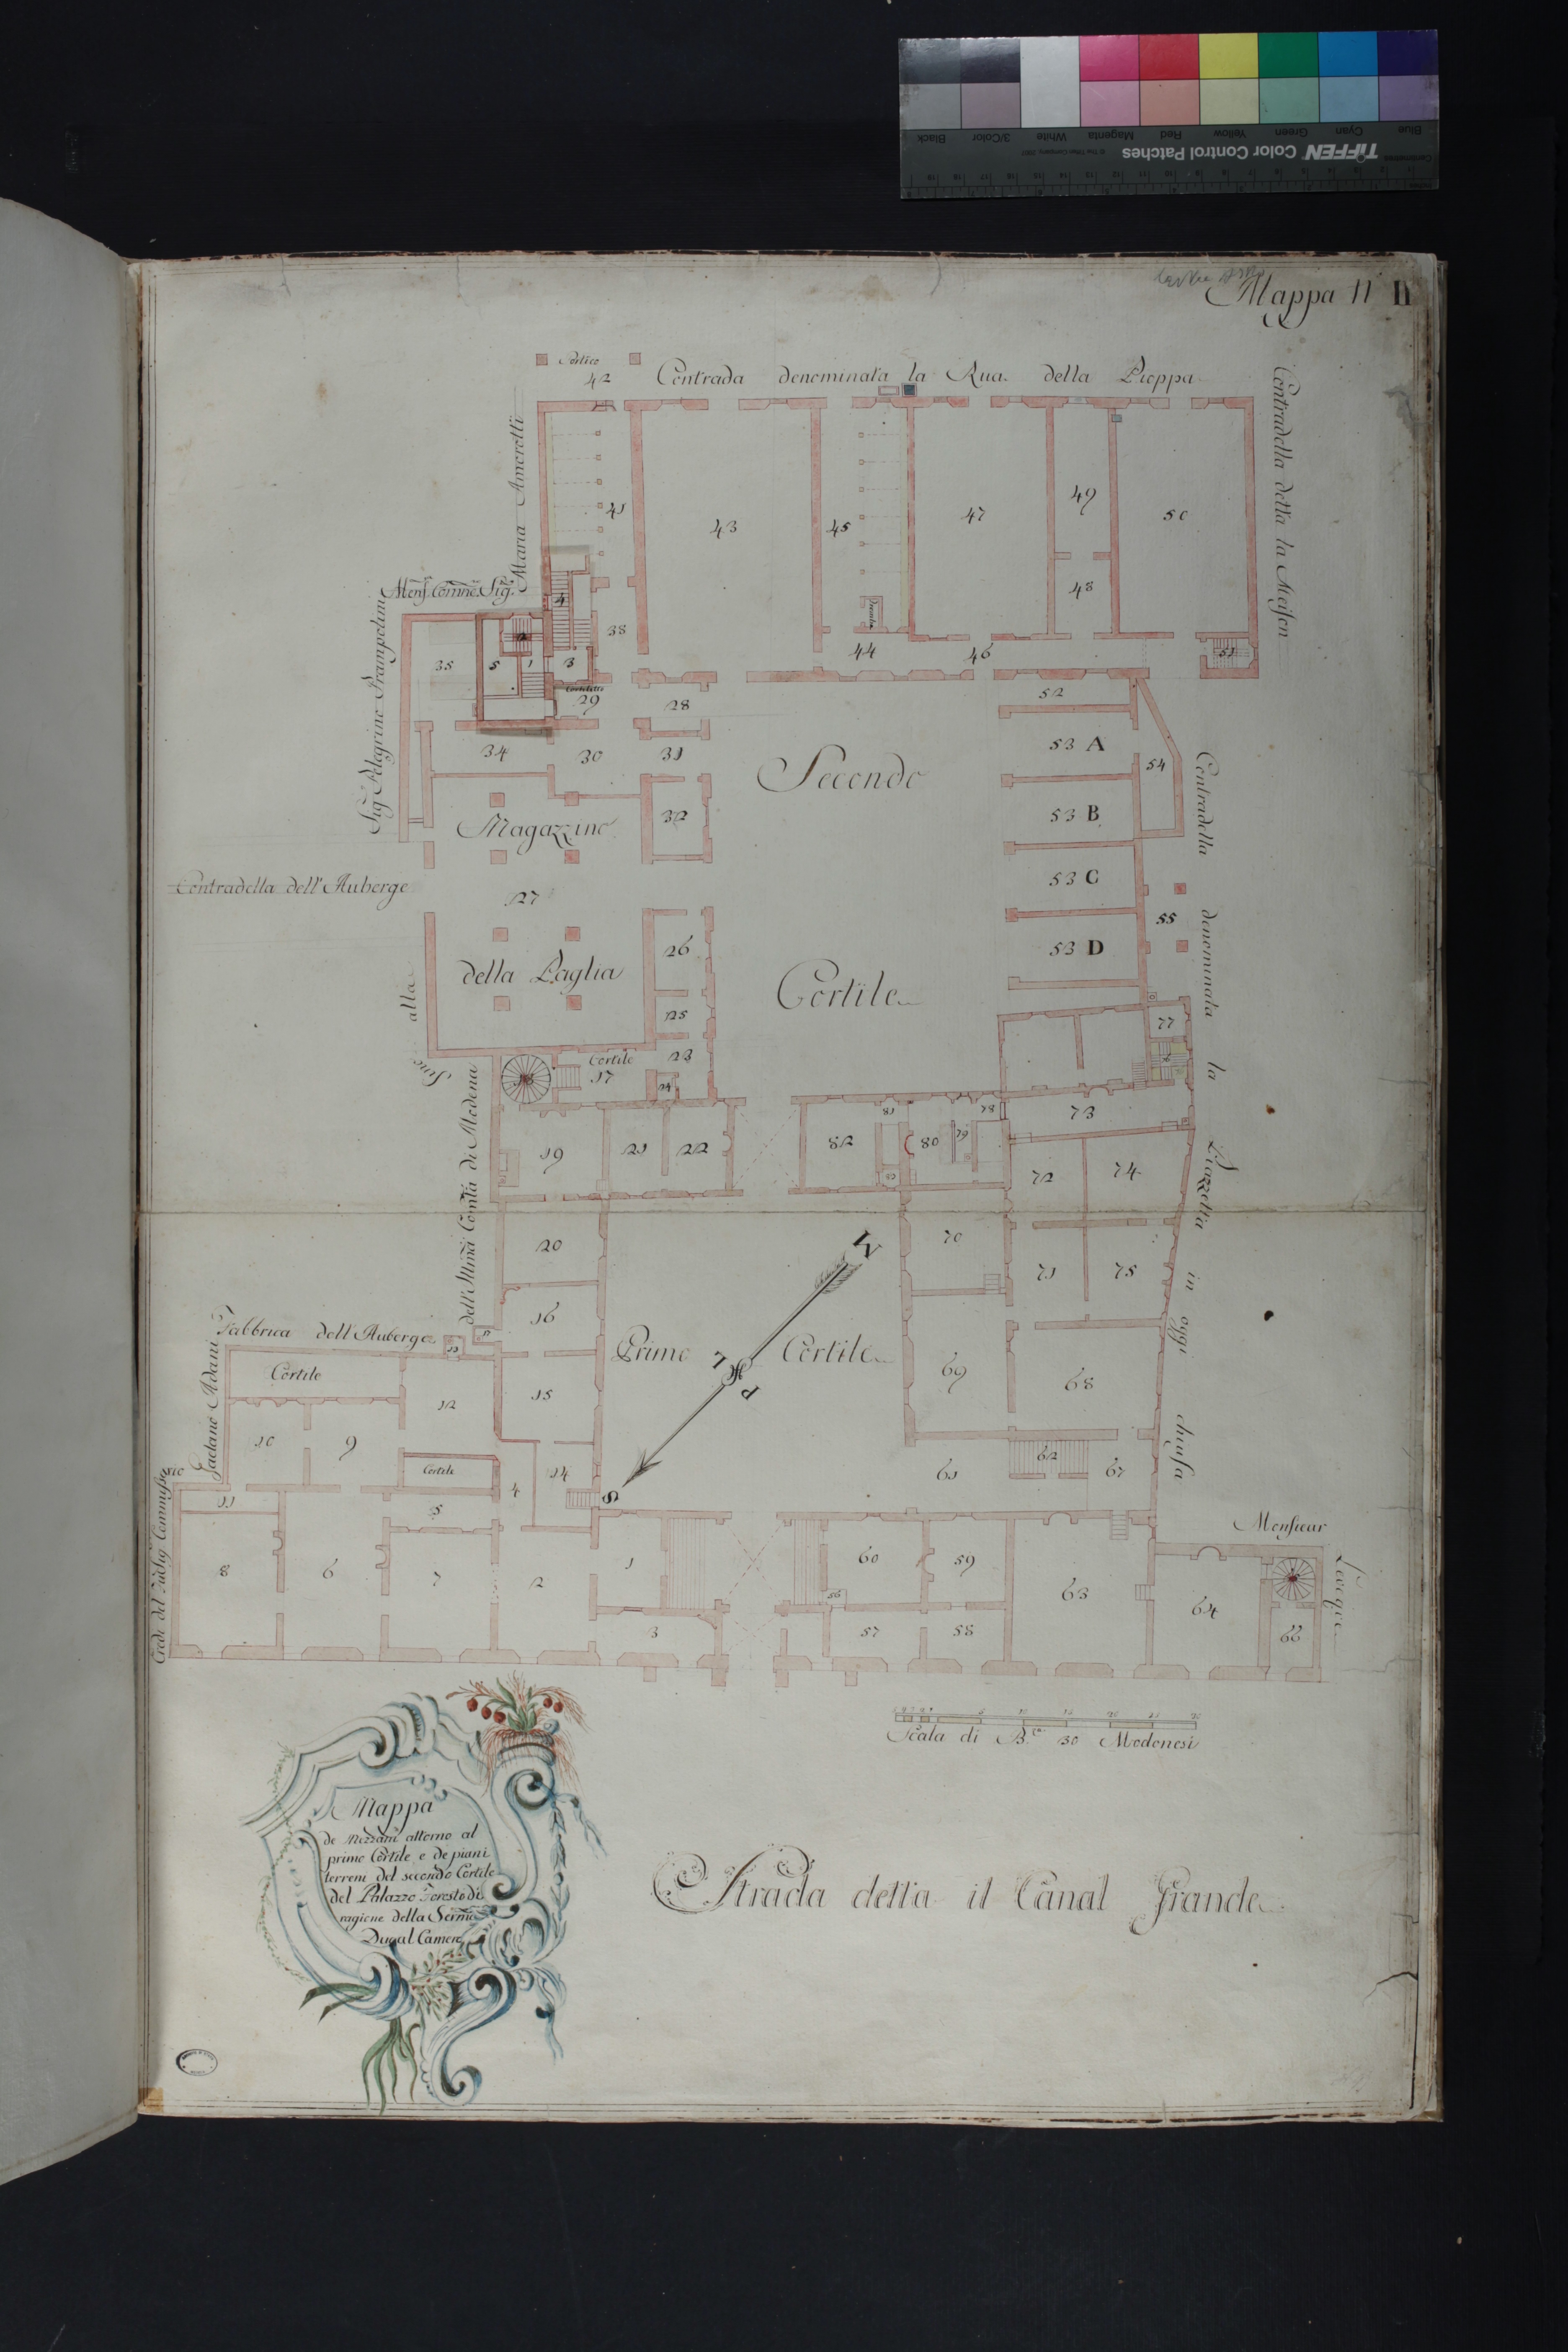 Blue Cyan Green Yellow Red Magenta White 3/Color Black
TIFFEN Color Control Patches
© The Tiffen Company, 2007
Centimetres
Mappa II II
Portico
42
Contrada denominata la Rua della Pioppa
Contradella detta la Meison
Maria Amorotti
41
43
45
47
49
50
48
Tromba
38
44
46
51
Sig. Pelegrino Trampolini
35
5
2
1
4
3
Cortiletto
29
28
52
34
30
31
53 A
54
Secondo
32
53 B
Magazzino
Contradella denominata la Piazzetta in oggi chiusa
Contradella dell'Auberge
27
53 C
55
26
53 D
della Paglia
Cortile
25
77
Cortile
17
23
24
18
alla
dell'Illma Comtà di Modena
19
21
22
82
81
80
79
78
73
72
74
20
70
71
75
16
M
Fabbrica dell'Auberge
13
Primo
L
Cortile
P
S
Cortile
12
15
69
68
Gaetano Adani
10
9
Cortile
4
14
61
62
67
11
5
8
6
7
2
1
3
60
59
56
57
58
63
64
66
Monsieur
Leveque
Scala di B.ra 30 Modonesi
Mappa
de Mezzani attorno al
primo Cortile e de piani
terreni del secondo Cortile
del Palazzo Foresto di
ragione della Serma
Ducal Camera
Strada detta il Canal Grande